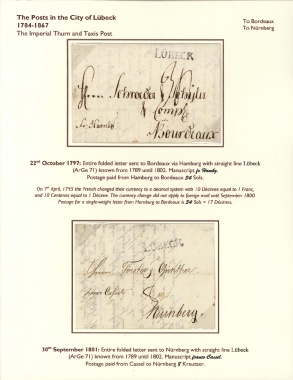 The Posts in the City of Lübeck
1784-1867
The Imperial Thurn and Taxis Post
To Bordeaux
To Nürnberg
LÜBECK
Bourdeaux
22nd October 1797: Entire folded letter sent to Bordeaux via Hamburg with straight line Lübeck
(ArGe 71) known from 1789 until 1802. Manuscript fr Hambg.
Postage paid from Hamburg to Bordeaux 34 Sols.
On 7th April, 1795 the French changed their currency to a decimal system with 10 Décimes equal to 1 Franc,
and 10 Centimes equal to 1 Décime. The currency change did not apply to foreign mail until September 1800.
Postage for a single-weight letter from Hamburg to Bordeaux is 34 Sols = 17 Décimes.
LÜBECK
franco Cassel
8
Nürnberg.
30th September 1801: Entire folded letter sent to Nürnberg with straight line Lübeck
(ArGe 71) known from 1789 until 1802. Manuscript franco Cassel.
Postage paid from Cassel to Nürnberg 8 Kreutzer.